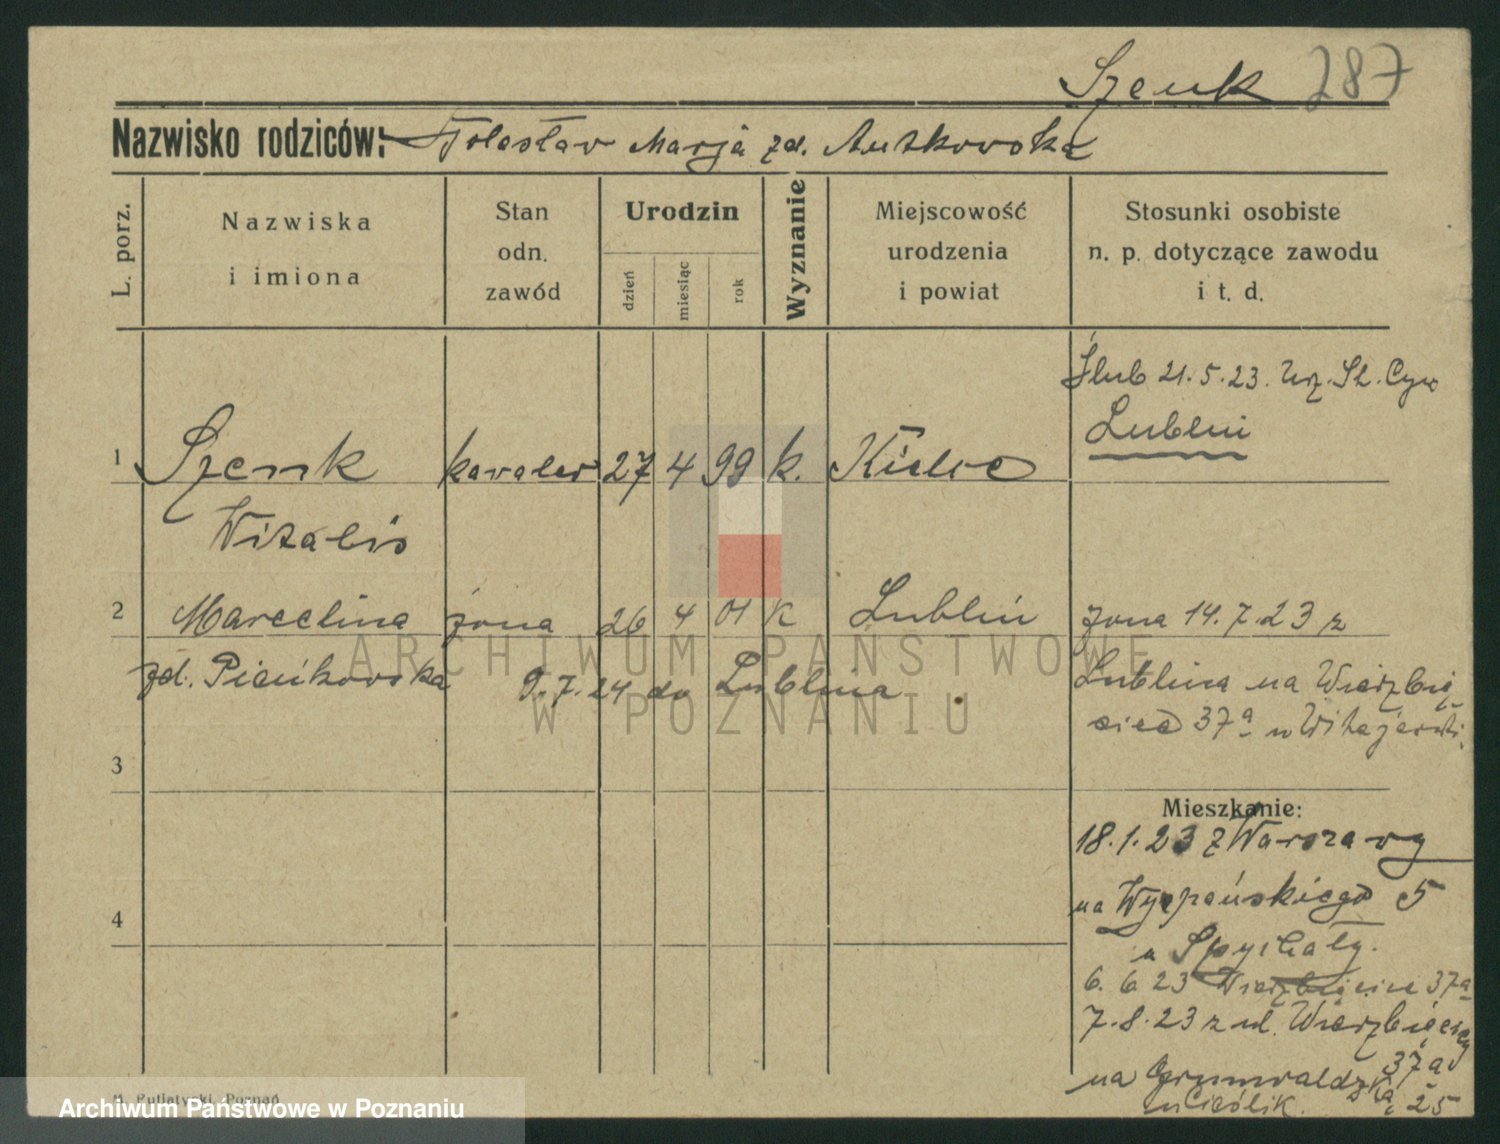 Szenk 287
Nazwisko rodziców: Bolesław Marja zd. Autkowska
L. porz.
Nazwiska
i imiona
Stan
odn.
zawód
Urodzin
dzień
miesiąc
rok
Wyznanie
Miejscowość
urodzenia
i powiat
Stosunki osobiste
n. p. dotyczące zawodu
i t. d.
Ślub 21.5.23. Urz. St. Cyw
Lublin
1 Szenk kawaler 27 4 99 k. Kielce
Witalis
2 Marcelina żona 26 4 01 k Lublin
żona 14.7.23 z
zd. Pieńkowska 9.7.24 do Lublina
Lublina na Wierzbię
cice 37a u
3
Mieszkanie:
18.1.23 z Warszawy
na Wyspańskiego 5
4
u Spychały.
6.6.23 Wierzbięcice 37a
7.8.23 z ul. Wierzbięcicy
37a
na Grunwaldzka 25
u Cieślik.
M. Putiatycki, Poznań
ARCHIWUM PAŃSTWOWE
W POZNANIU
Archiwum Państwowe w Poznaniu